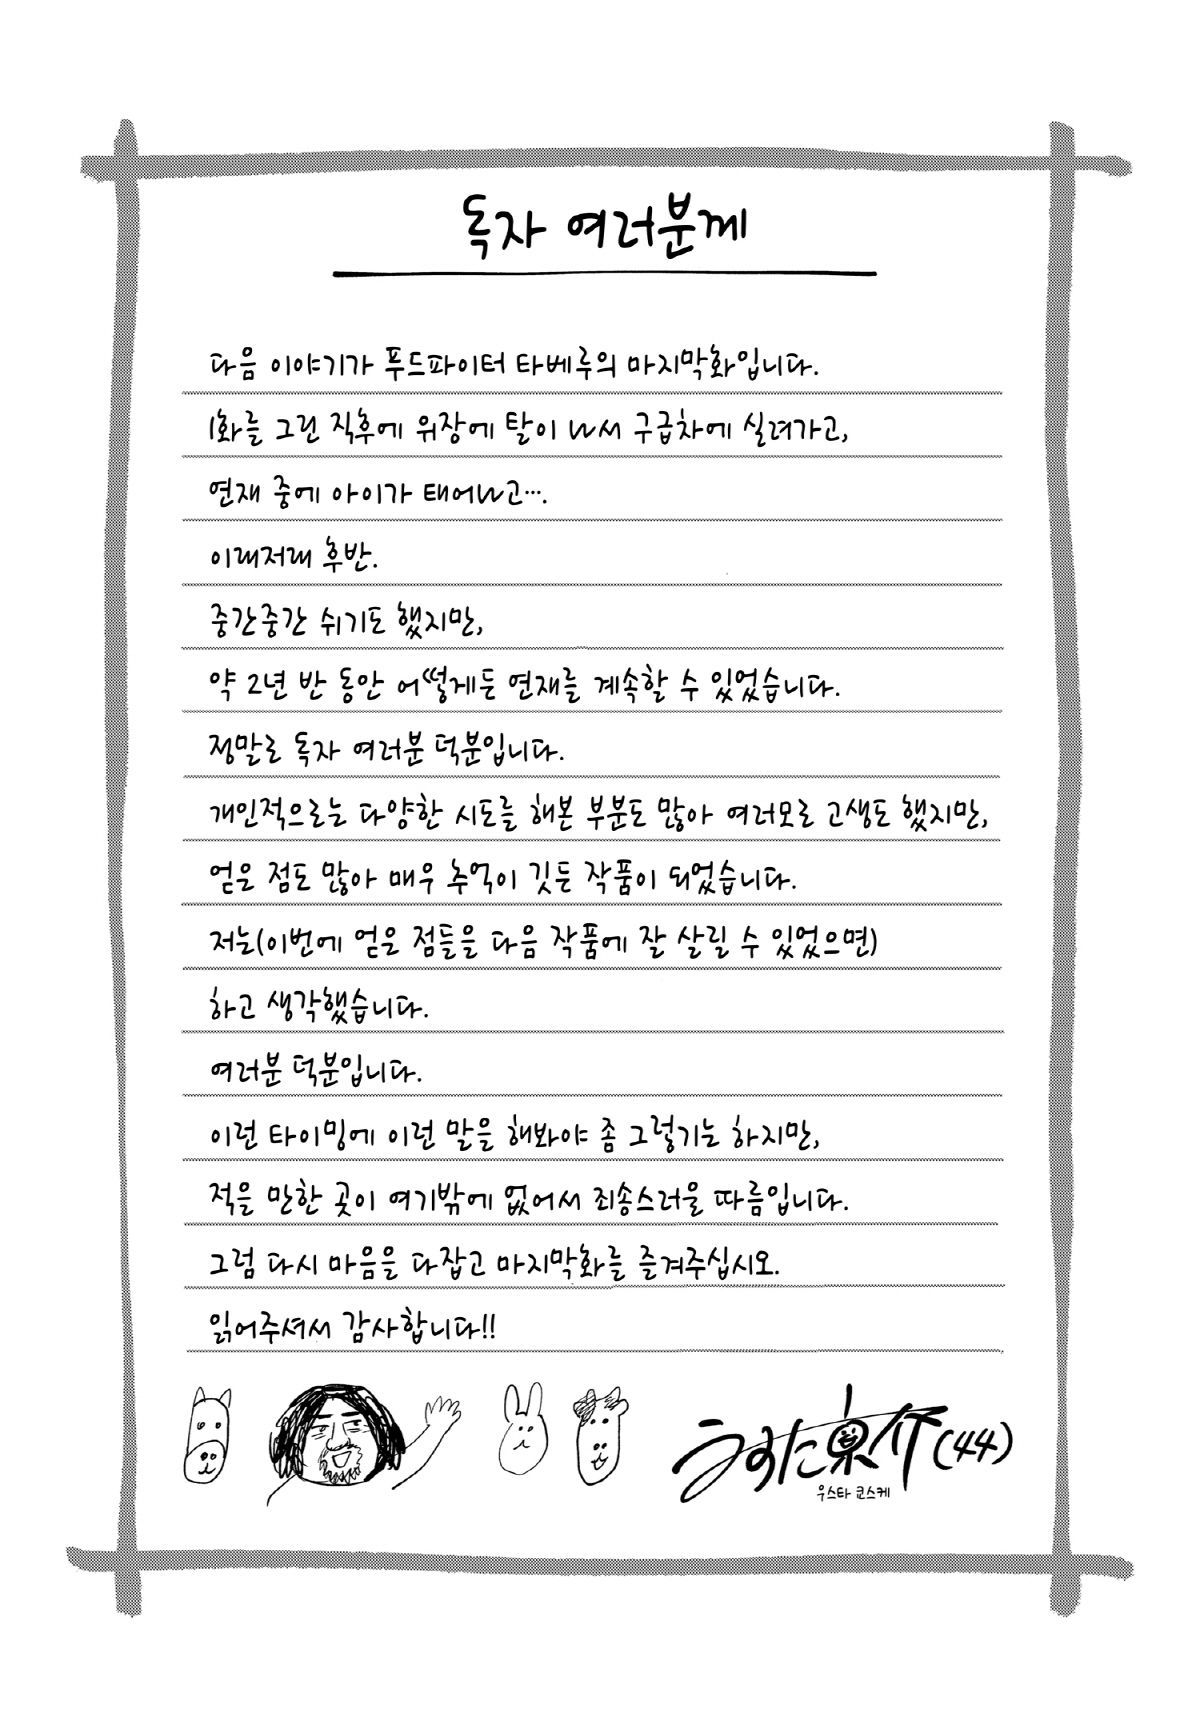 독자 여러분께
다음 이야기가 푸드파이터 타베루의 마지막화입니다.
1화를 그린 직후에 위장에 탈이 나서 구급차에 실려가고,
연재 중에 아이가 태어나고….
이래저래 후반.
중간중간 쉬기도 했지만,
약 2년 반 동안 어떻게든 연재를 계속할 수 있었습니다.
정말로 독자 여러분 덕분입니다.
개인적으로는 다양한 시도를 해본 부분도 많아 여러모로 고생도 했지만,
얻은 점도 많아 매우 추억이 깃든 작품이 되었습니다.
저는(이번에 얻은 점들을 다음 작품에 잘 살릴 수 있었으면)
하고 생각했습니다.
여러분 덕분입니다.
이런 타이밍에 이런 말을 해봐야 좀 그렇기는 하지만,
적을 만한 곳이 여기밖에 없어서 죄송스러울 따름입니다.
그럼 다시 마음을 다잡고 마지막화를 즐겨주십시오.
읽어주셔서 감사합니다!!
うすた京介(44)
우스타 쿄스케